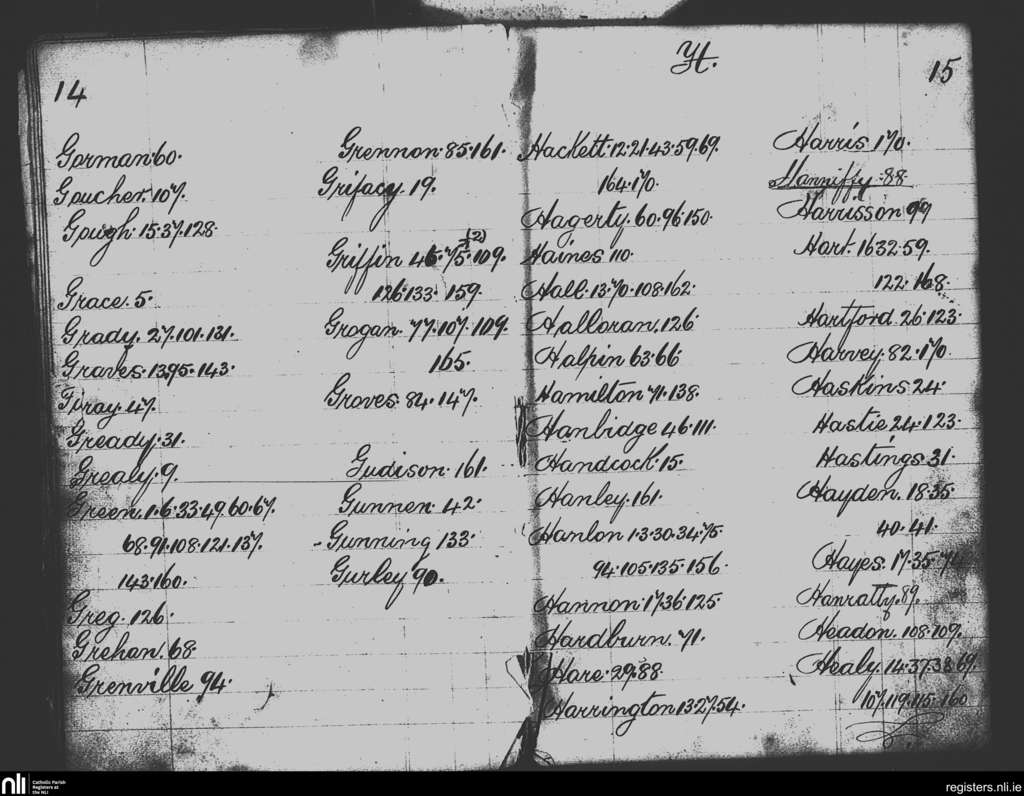 14
Gorman 60.
Goucher. 107.
Gough. 15.37.128.
Grace. 5.
Grady. 27.101.131.
Graves. 13.95.143.
Gray. 47.
Gready. 31.
Grealy. 9.
Green. 1.6.33.49.60.67.
68.91.108.121.137.
143.160.
Greg. 126.
Grehan. 68.
Grenville 94.
Grennon. 85.161.
Grifacy. 19.
(2)
Griffin 46.75.109.
126.133. 159.
Grogan. 77.107.109.
165.
Groves. 84.147.
Gudison. 161.
Gunnen. 42.
Gunning 133.
Gurley 90.
H.
15
Hackett. 12.21.43.59.69.
164.170.
Hagerty. 60.96.150.
Haines 110.
Hall. 13.70.108.162.
Halloran. 126
Halpin 63.66
Hamilton 71.138.
Hanbidge 46.111.
Handcock. 15.
Hanley. 161.
Hanlon 1.3.30.34.75.
94.105.135.156.
Hannon. 17.36.125
Hardburn. 71.
Hare. 29.88.
Harrington 13.27.54.
Harris. 170.
Hanniffy. 88
Harrisson 99
Hart. 16.32.59.
122. 168.
Hartford 26.123.
Harvey. 82.170.
Haskins 24.
Hastie 24.123.
Hastings. 31.
Hayden. 18.35.
40.41.
Hayes. 17.35.74
Hanratty. 89.
Headon. 108.109.
Healy. 14.37.38.69.
107.119.115.160
nli
Catholic Parish
Registers at
the NLI
registers.nli.ie